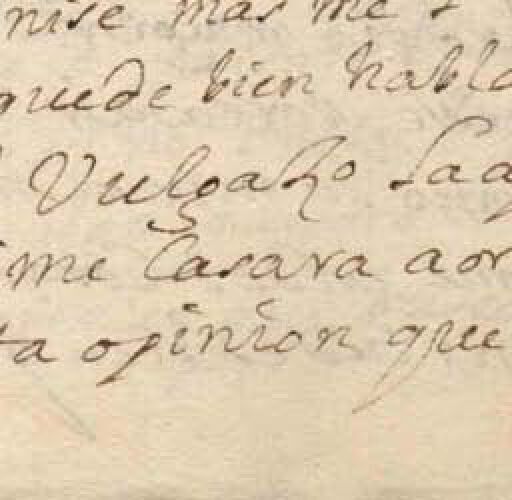 nise mas me
quede bien habla
Vulgazo Saq
me Casara aor
ta opinion que